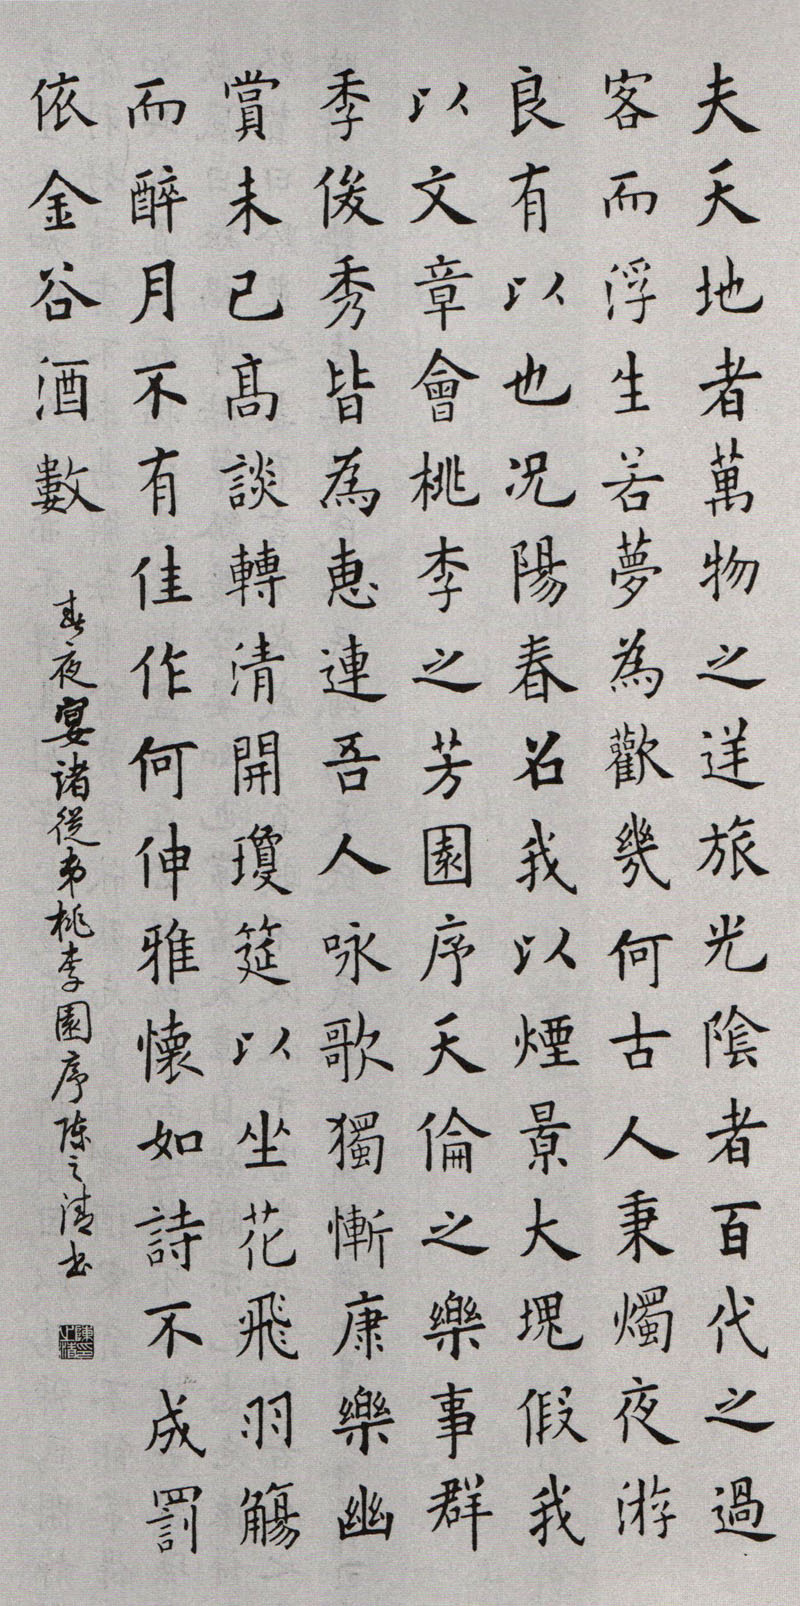 夫天地者萬物之逆旅光陰者百代之過
客而浮生若夢為歡幾何古人秉燭夜游
良有以也况陽春召我以煙景大塊假我
以文章會桃李之芳園序天倫之樂事群
季俊秀皆為惠連吾人咏歌獨慚康樂幽
賞未已髙談轉清開瓊筵以坐花飛羽觴
而醉月不有佳作何伸雅懷如詩不成罰
依金谷酒數
春夜宴諸從弟桃李園序陳之清書
陳印之清